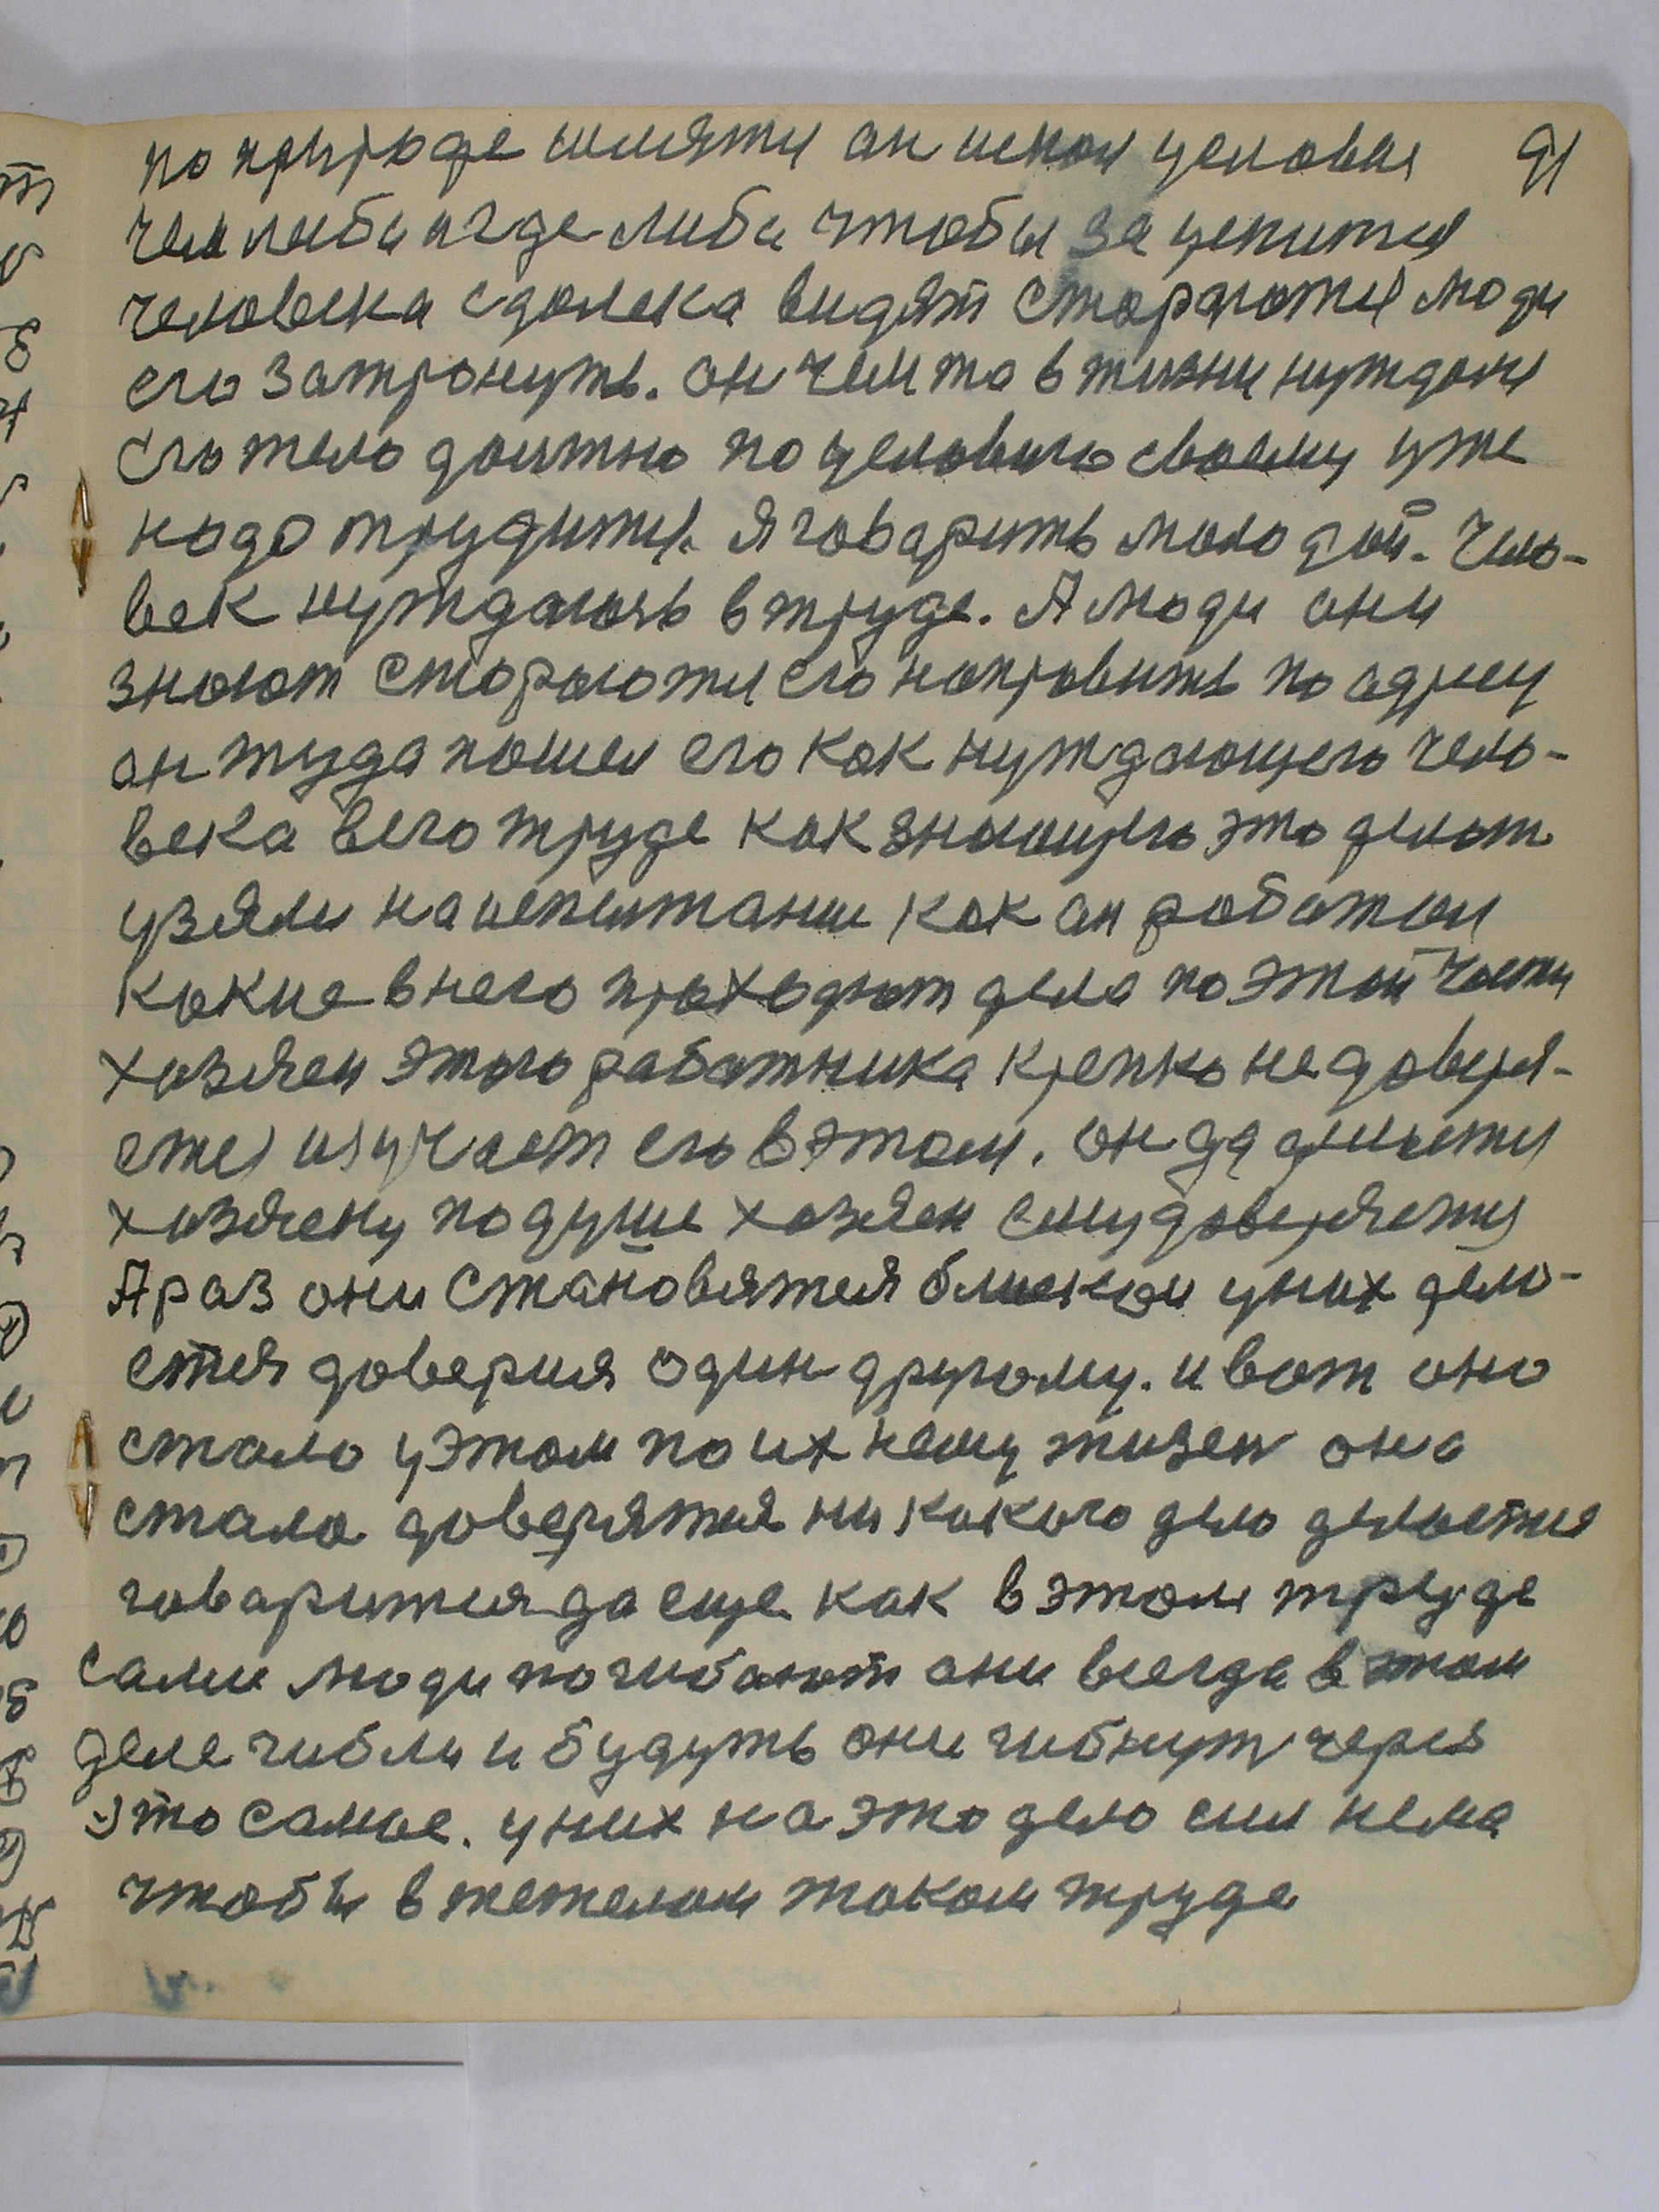 по природе шляти он искал условия 91
чем либо и где либо чтобы за цепится
человека сдолека видят стораются люди
его затронуть. он чем то в жизни нуждая
его тело должно по условию своему уже
надо трудится. Я говарить молодой. Чело-
век нуждаюсь в труде. А люди они
знают стораются его направить по адресу
он туда пошел его как нуждающего чело-
века в его труде как знающего это делат
узяли на испитание как он работал
какие в него проходют дела по этой части
хозяен этого работника крепко не доверя-
ется изучает его в этом. он
хозяену по душе хозяен ему доверяется
А раз они становятся близкои у них дело-
ется доверия один другому. и вот оно
стало у этом по ихнему жизен она
стала доверятся ни какого дело делается
говарится да еще как в этом труде
сами люди погибают они всегда в этом
деле гибли и будуть они гибнут через
это самое. у них на это дело сил нема
чтобы в тежелом таком труде